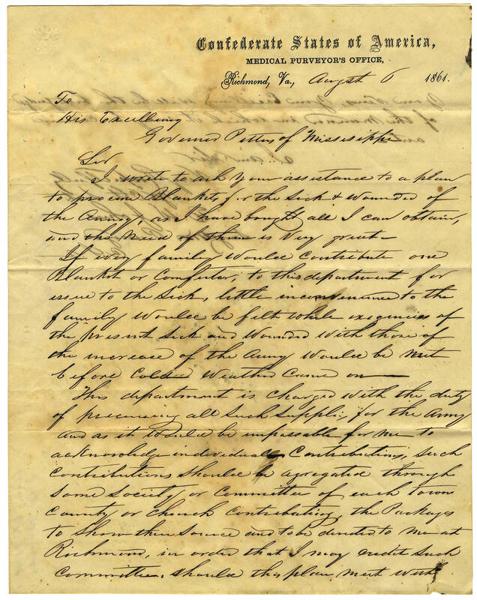 Confederate States of America,
MEDICAL PURVEYOR'S OFFICE,
Richmond, Va., August 6 1861.
To
His Excellency
Governor Pettus of Mississippi
Sir
I wrote to ask your assistance to a plan
to procure Blankets for the Sick & Wounded of
the Army, as I have bought all I can obtain,
and the need of them is very great—
If every family would contribute one
Blanket or Comforter, to this department for
issue to the Sick, little inconvenience to the
family would be felt while exigencies of
the present Sick and Wounded with those of
the increase of the Army would be met
before Cold Weather Came on—
This department is charged with the duty
of procuring all Such Supplies for the Army
and as it would be impossible for me to
acknowledge individual Contributions, Such
Contributions should be agregated through
Some Society or Committee of each town
County or Church contributing, the Packages
to Show their Source and to be directed to me at
Richmond, in order that I may credit Such
Committee, should this plan meet with